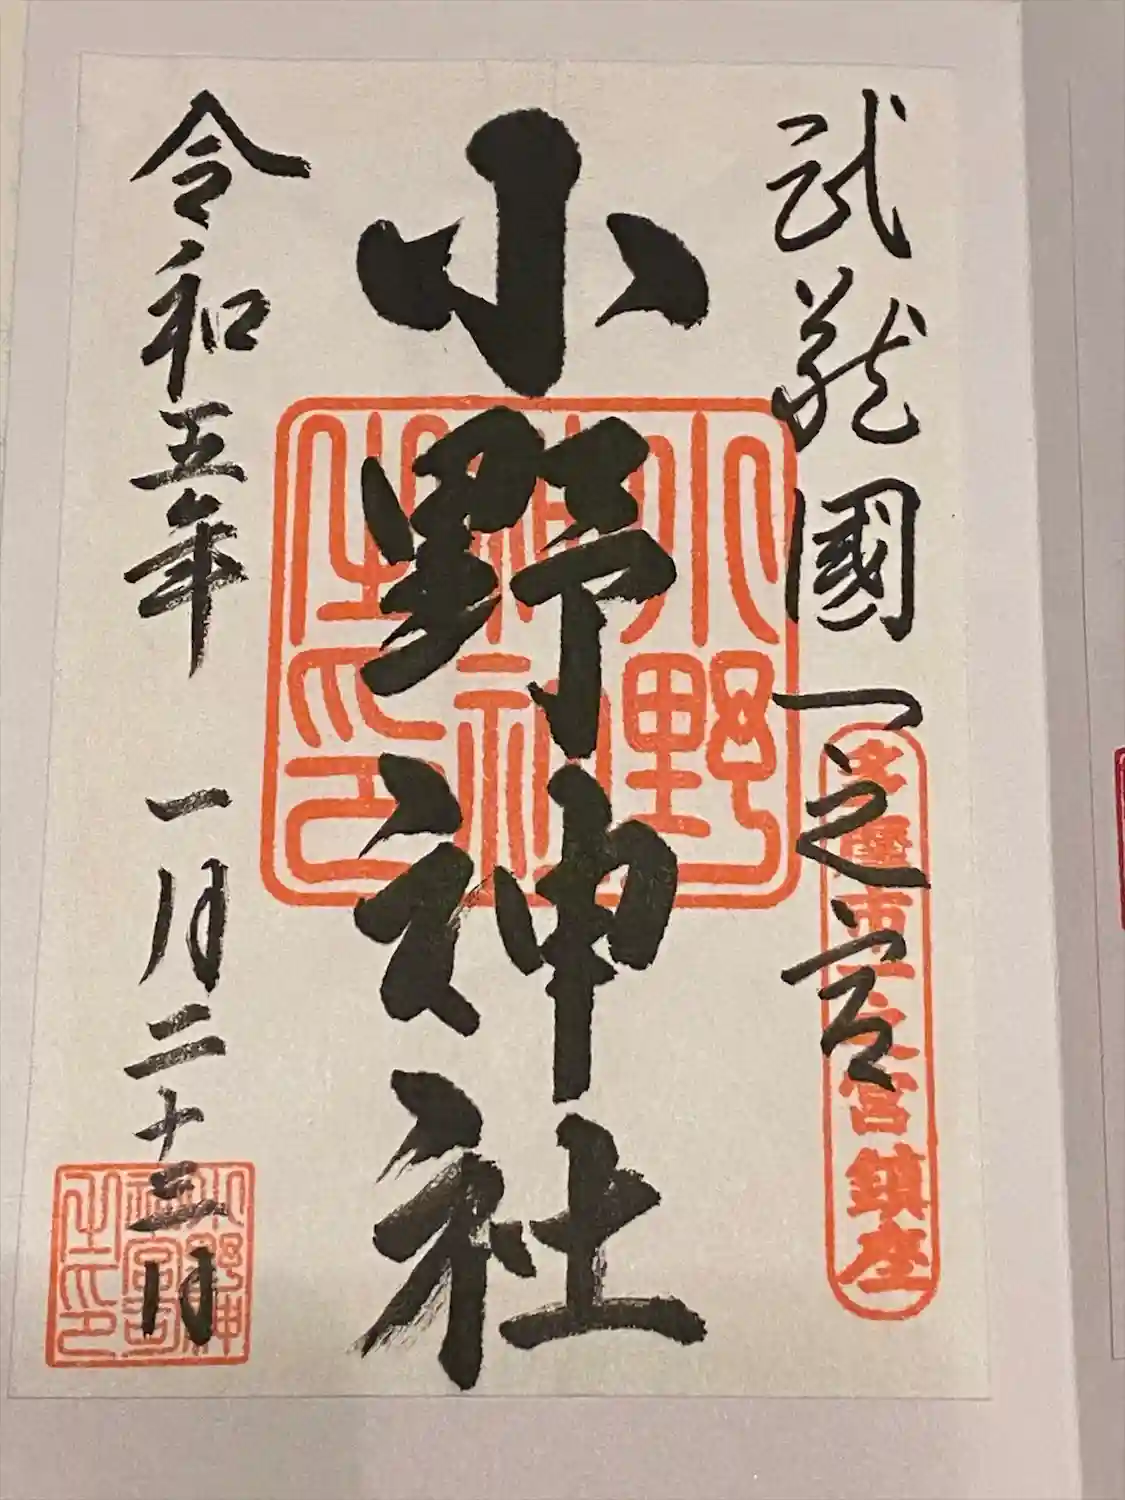 武蔵國一之宮
多摩市一之宮鎮座
小野神社
小野神社之印
令和五年 一月二十三日
小野神社宮司之印